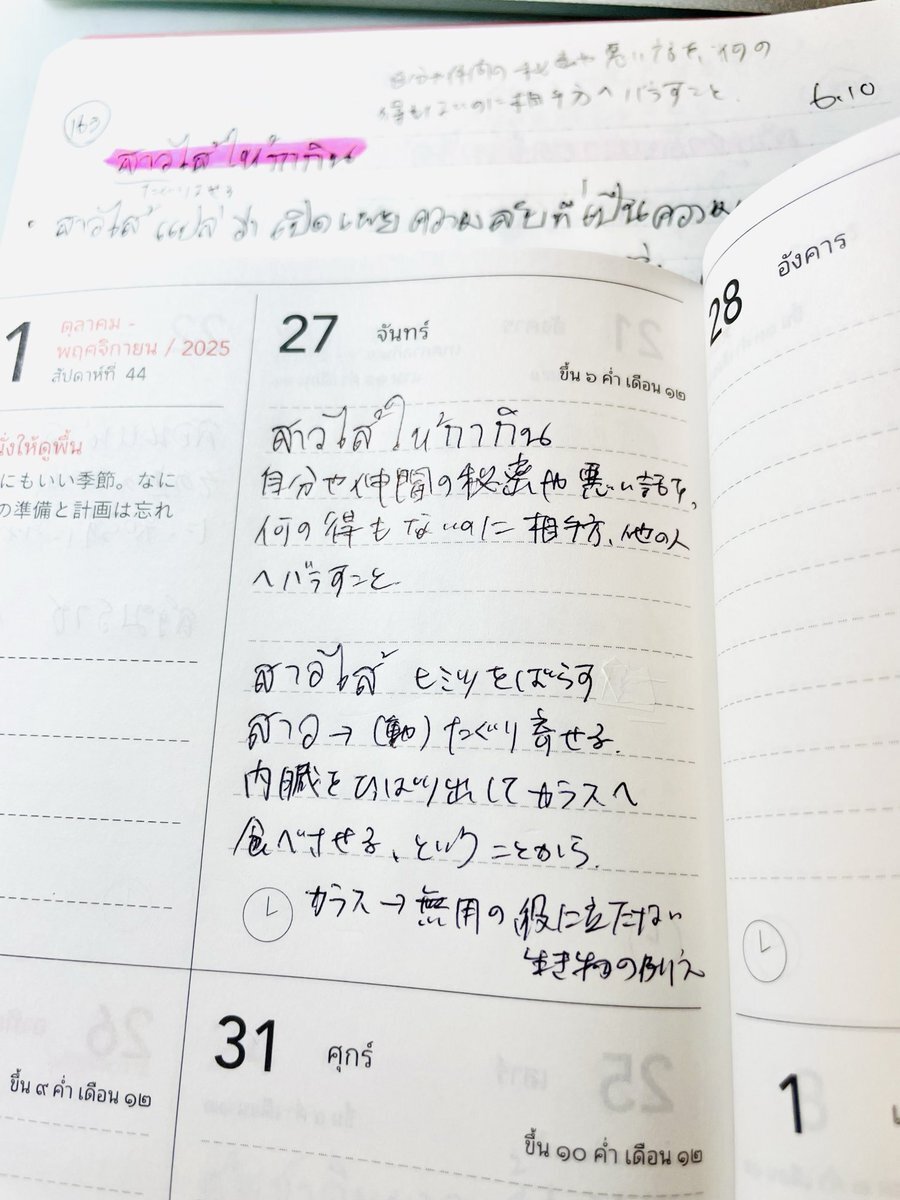 自分や仲間の秘密や悪い話を、何の
得もないのに相手方へバラすこと
6.10
163
สาวไส้ให้กากิน
สาวไส้ แปลว่า เปิดเผยความลับที่เป็นความ
1
ตุลาคม -
พฤศจิกายน / 2025
สัปดาห์ที่ 44
27 จันทร์
ขึ้น ๖ ค่ำ เดือน ๑๒
28 อังคาร
นั่งให้ดูพื้น
にもいい季節。なに
の準備と計画は忘れ
สาวไส้ให้กากิน
自分や仲間の秘密や悪い話を、
何の得もないのに相手方、他の人
へバラすこと
สาวไส้ ヒミツをばらす
สาว → (動) たぐり寄せる.
内臓をひっぱり出してカラスへ
食べさせる、ということから.
カラス → 無用の役に立たない
生き物の例え
26
ขึ้น ๙ ค่ำ เดือน ๑๒
31 ศุกร์
ขึ้น ๑๐ ค่ำ เดือน ๑๒
1